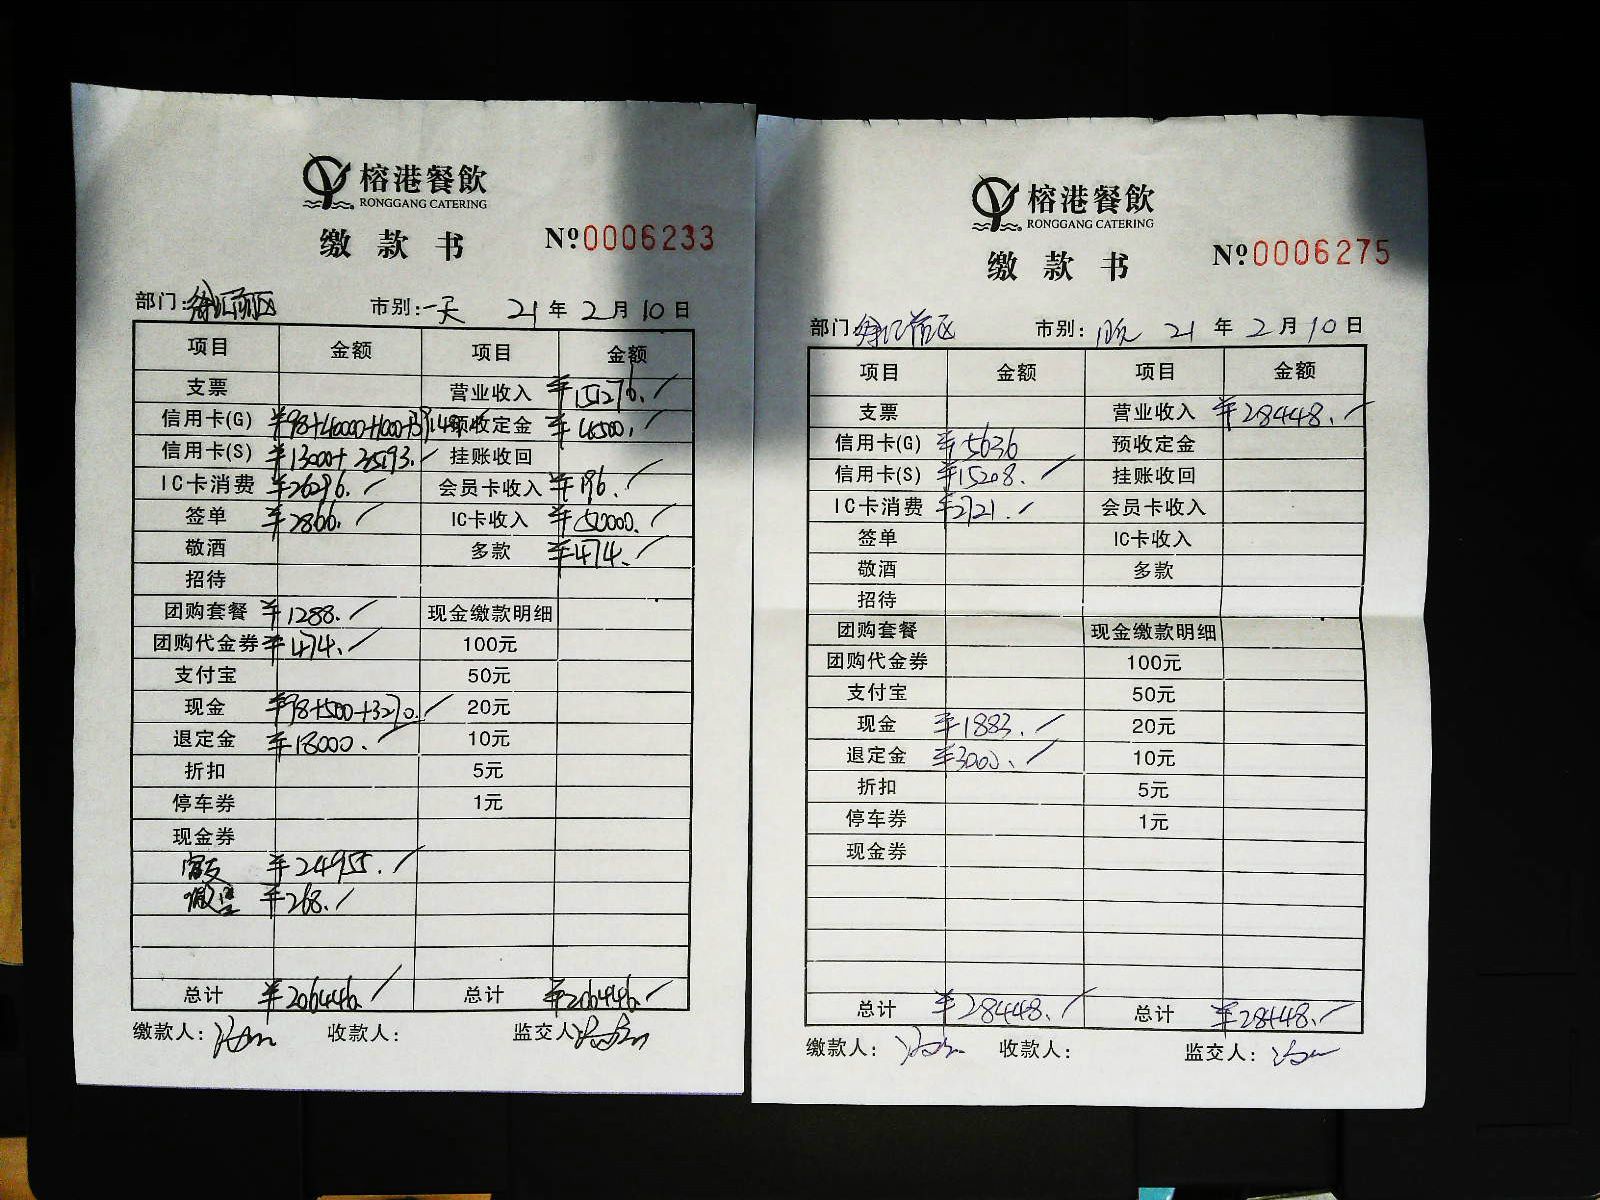 榕港餐飲
RONGGANG CATERING
缴款书
№0006233
部门: 徐汇前区 市别: 一天 21年2月10日
项目 金额 项目 金额
支票 营业收入 ¥151276.
信用卡(G) 预收定金 ¥4500.
信用卡(S) ¥13000+35193. 挂账收回
IC卡消费 ¥26296. 会员卡收入 ¥196.
签单 ¥2866. IC卡收入 ¥50000.
敬酒 多款 ¥474.
招待
团购套餐 ¥1288. 现金缴款明细
团购代金券 ¥474. 100元
支付宝 50元
现金 ¥98+500+3270. 20元
退定金 ¥18000. 10元
折扣 5元
停车券 1元
现金券
¥24955.
¥268.
总计 ¥206446. 总计 ¥206446.
缴款人: 收款人: 监交人
榕港餐飲
RONGGANG CATERING
缴款书
№0006275
部门: 徐汇前区 市别: 21年2月10日
项目 金额 项目 金额
支票 营业收入 ¥28448.
信用卡(G) ¥5636 预收定金
信用卡(S) ¥15208. 挂账收回
IC卡消费 ¥2721. 会员卡收入
签单 IC卡收入
敬酒 多款
招待
团购套餐 现金缴款明细
团购代金券 100元
支付宝 50元
现金 ¥1883. 20元
退定金 ¥3000. 10元
折扣 5元
停车券 1元
现金券
总计 ¥28448. 总计 ¥28448.
缴款人: 收款人: 监交人: